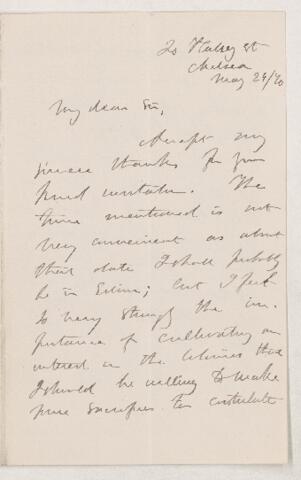 20 Halsey St
Chelsea
May 24/70
My dear Sir,
Accept my
sincere thanks for your
kind invitation. The
time mentioned is not
very convenient as about
that date I shall probably
be in Edinr; but I feel
so very strongly the im-
portance of cultivating an
interest in the Colonies that
I should be willing to make
some sacrifices to contribute